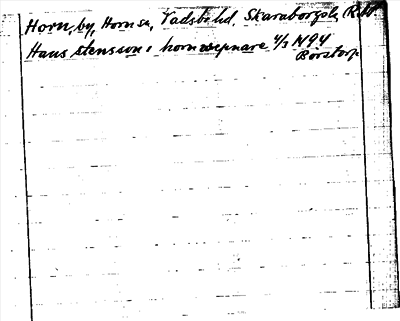 Horn, by, Horns sn, Vadsbo hd, Skaraborgs l.
Hans stensson i horn wepnare 4/3 1494
Börstorp